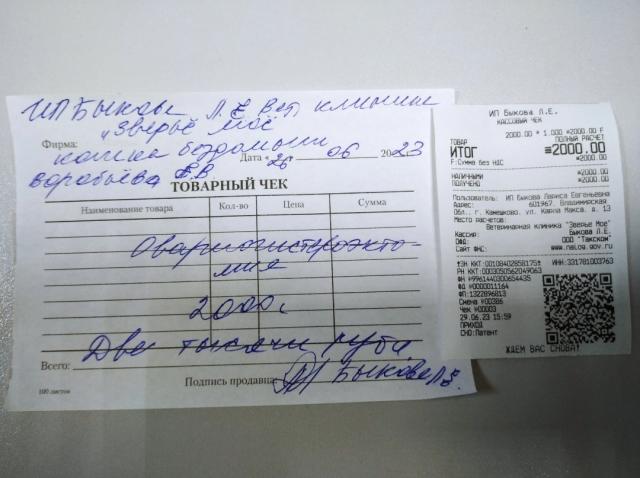 ИП Быкова Л.Е. Вет. клиника
"Зверьё моё
Фирма:
кошка бездомыш
Дата "26" 06 2023
Воробьёва Е.В
ТОВАРНЫЙ ЧЕК
Наименование товара Кол-во Цена Сумма
Овариогистероэкто-
мия
2000
Две тысячи руб.
Всего:
Подпись продавца Быкова Л.Е.
100 листов
ИП Быкова Л.Е.
КАССОВЫЙ ЧЕК
2000.00 * 1.000 =2000.00
ПОЛНЫЙ РАСЧЕТ
ТОВАР
ИТОГ =2000.00
Сумма без НДС =2000.00
НАЛИЧНЫМИ =2000.00
ПОЛУЧЕНО =2000.00
Пользователь: ИП Быкова Лариса Евгеньевна
Адрес: 601967, Владимирская
Обл., г. Камешково, ул. Карла Макса, д. 13
Место расчетов:
Ветеринарная клиника "Зверье Мое"
Кассир: Быкова Л.Е.
ОФД: ООО "Такском"
Сайт ФНС: www.nalog.gov.ru
ЗН ККТ:00108402858175 ИНН:331781003763
РН ККТ:0003050562049063
ФН №9961440300654435
ФД №0000011164
ФП:1322896813
Смена №00386
Чек №00003
29.06.23 15:59
ПРИХОД
СНО:Патент
ЖДЕМ ВАС СНОВА!